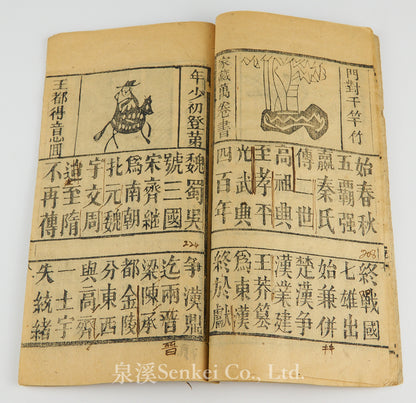 門對千竿竹
家藏萬卷書
始春秋 終戰國
五霸强 七雄出
嬴秦氏 始兼併
傳二世 楚漢爭
高祖興 漢業建
王孝平 王莽篡
光武興 為東漢
四百年 終於獻
年少初登第
王都得意囬
魏蜀吳 爭漢鼎
號三國 迄兩晉
宋齊繼 梁陳承
為南朝 都金陵
北元魏 分東西
宇文周 與高齊
迨至隋 一土宇
不再傳 失統緒
224
晉
泉溪Senkei Co., Ltd.